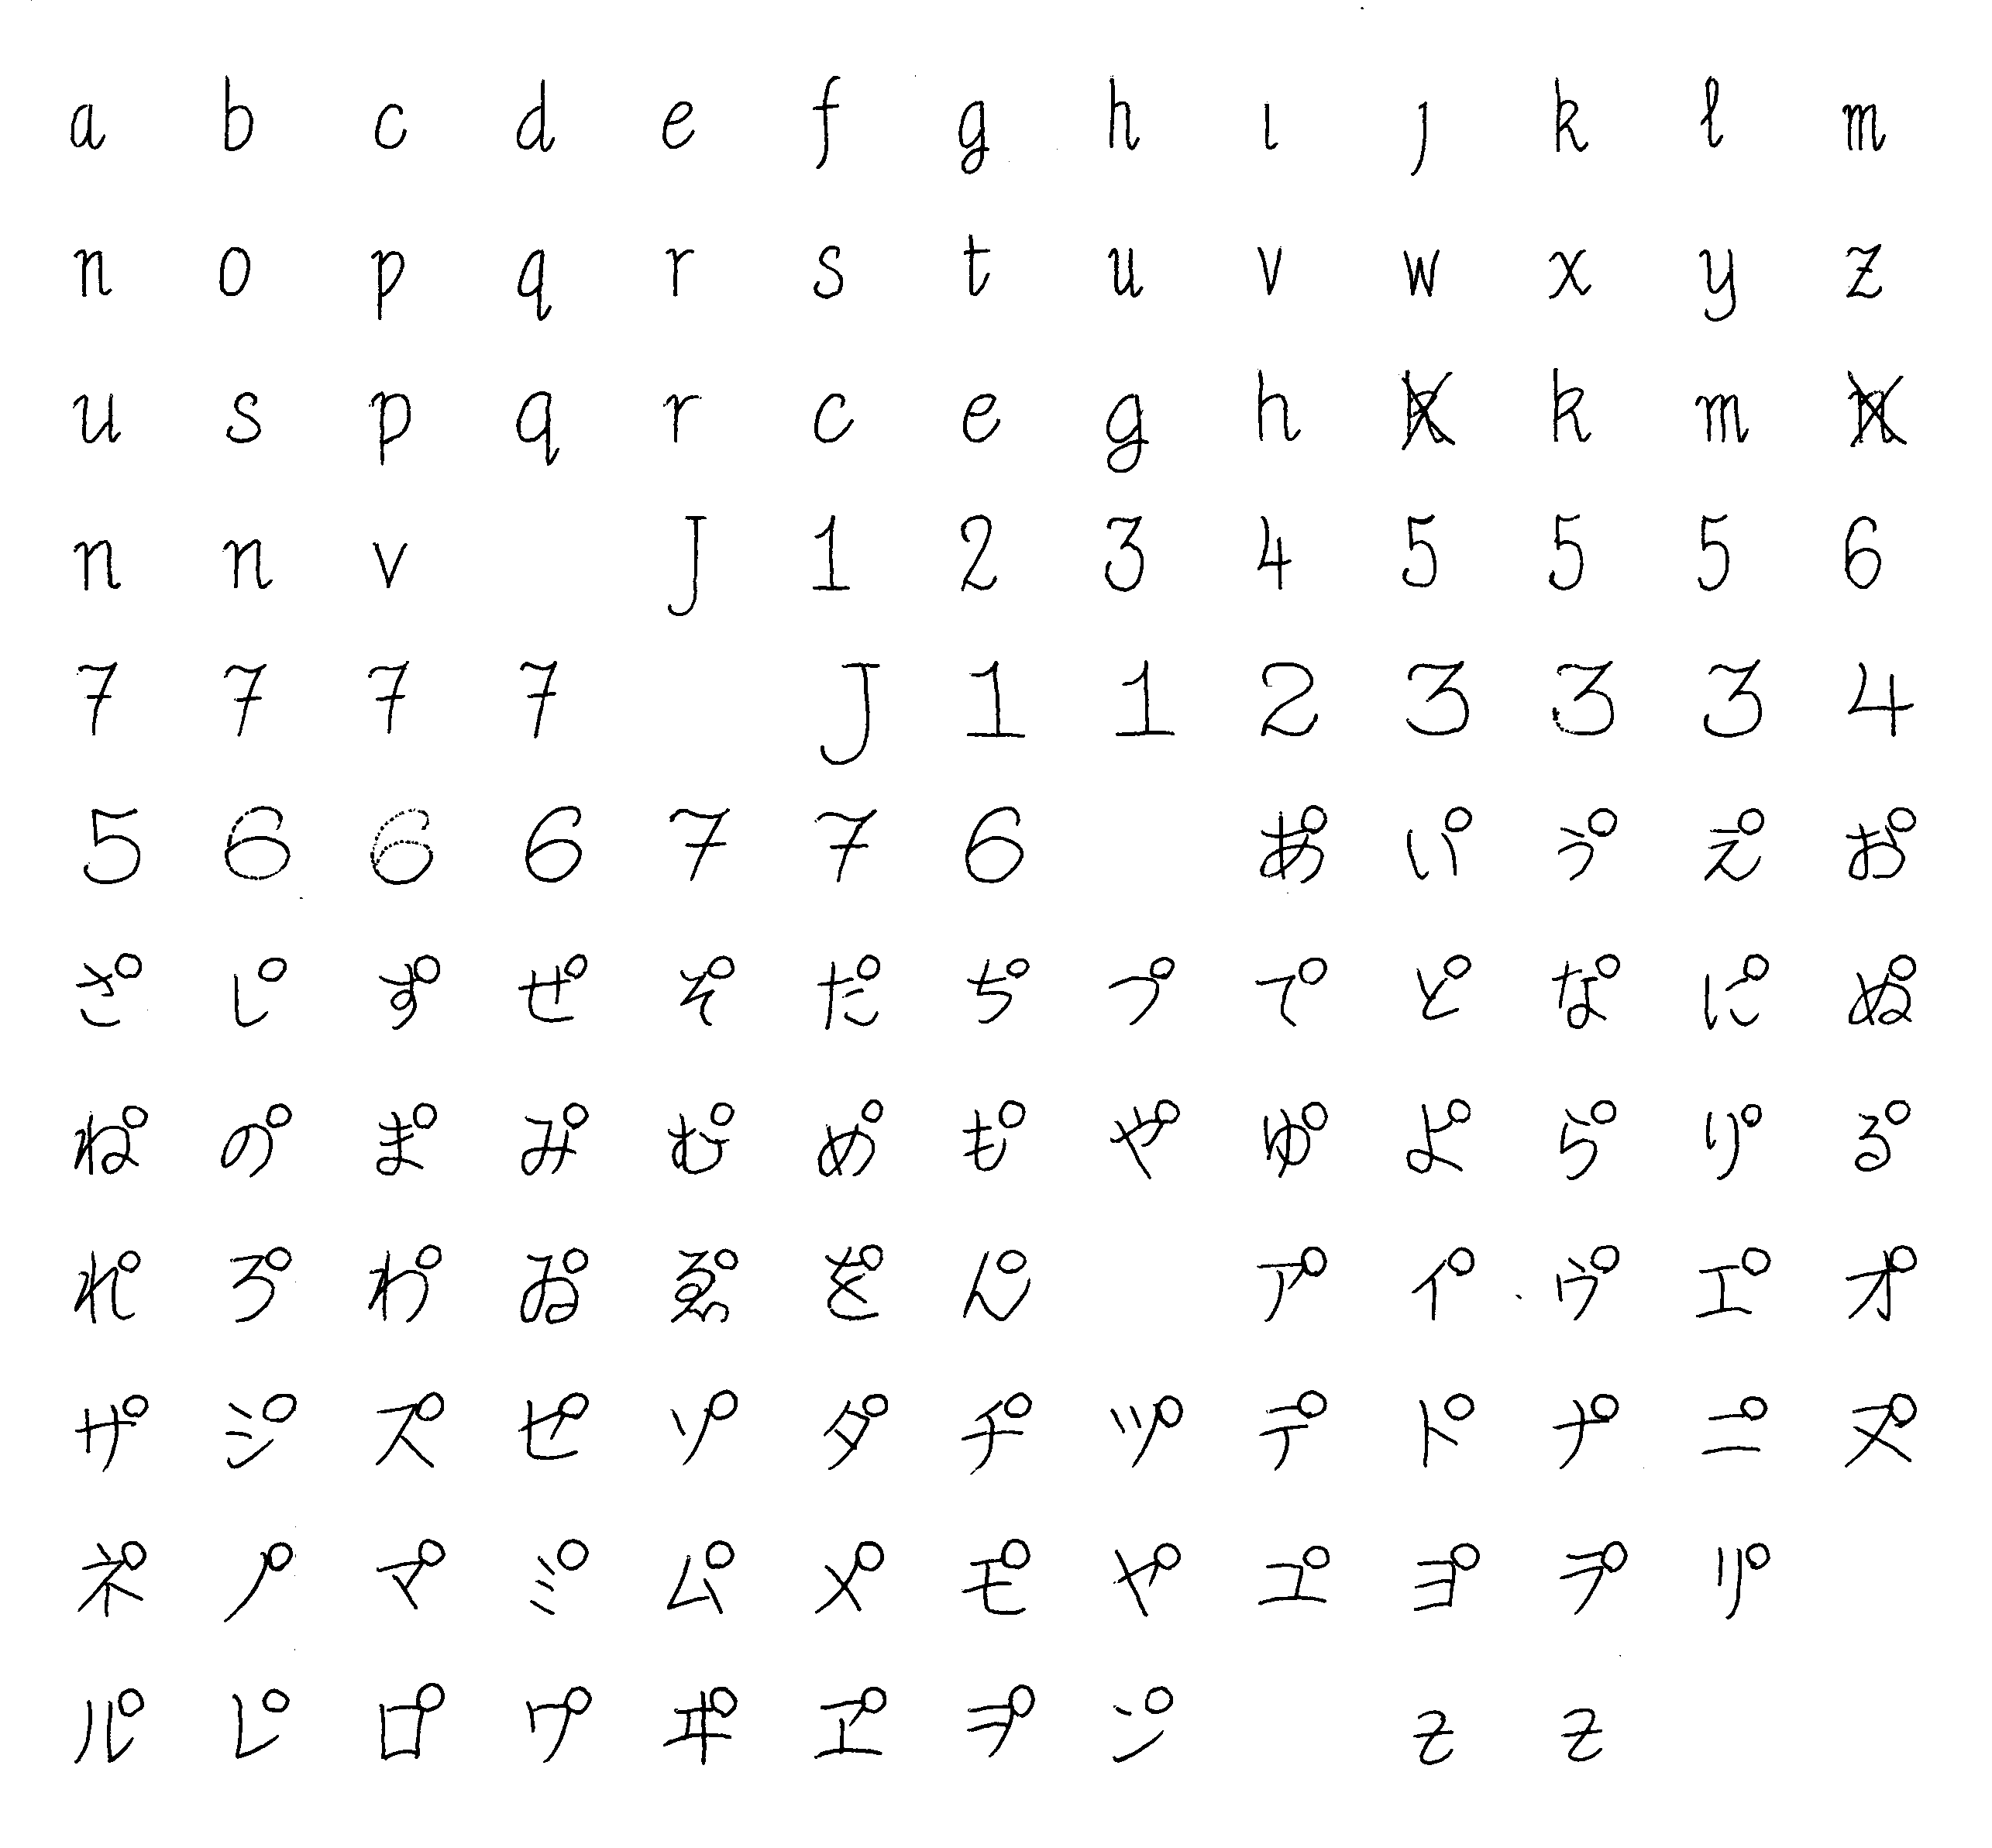 a b c d e f g h ı ȷ k l m
n o p q r s t u v w x y z
u s p q r c e g h k m
n n v J 1 2 3 4 5 5 5 6
7 7 7 7 J 1 1 2 3 3 3 4
5 6 6 6 7 7 6 あ゚ い゚ う゚ え゚ お゚
さ゚ し゚ す゚ せ゚ そ゚ た゚ ち゚ つ゚ て゚ と゚ な゚ に゚ ぬ゚
ね゚ の゚ ま゚ み゚ む゚ め゚ も゚ や゚ ゆ゚ よ゚ ら゚ り゚ る゚
れ゚ ろ゚ わ゚ ゐ゚ ゑ゚ を゚ ん゚ ア゚ イ゚ ウ゚ エ゚ オ゚
サ゚ シ゚ ス゚ セ゚ ソ゚ タ゚ チ゚ ツ゚ テ゚ ト゚ ナ゚ ニ゚ ヌ゚
ネ゚ ノ゚ マ゚ ミ゚ ム゚ メ゚ モ゚ ヤ゚ ユ゚ ヨ゚ ラ゚ リ゚
ル゚ レ゚ ロ゚ ワ゚ ヰ゚ ヱ゚ ヲ゚ ン゚ z z